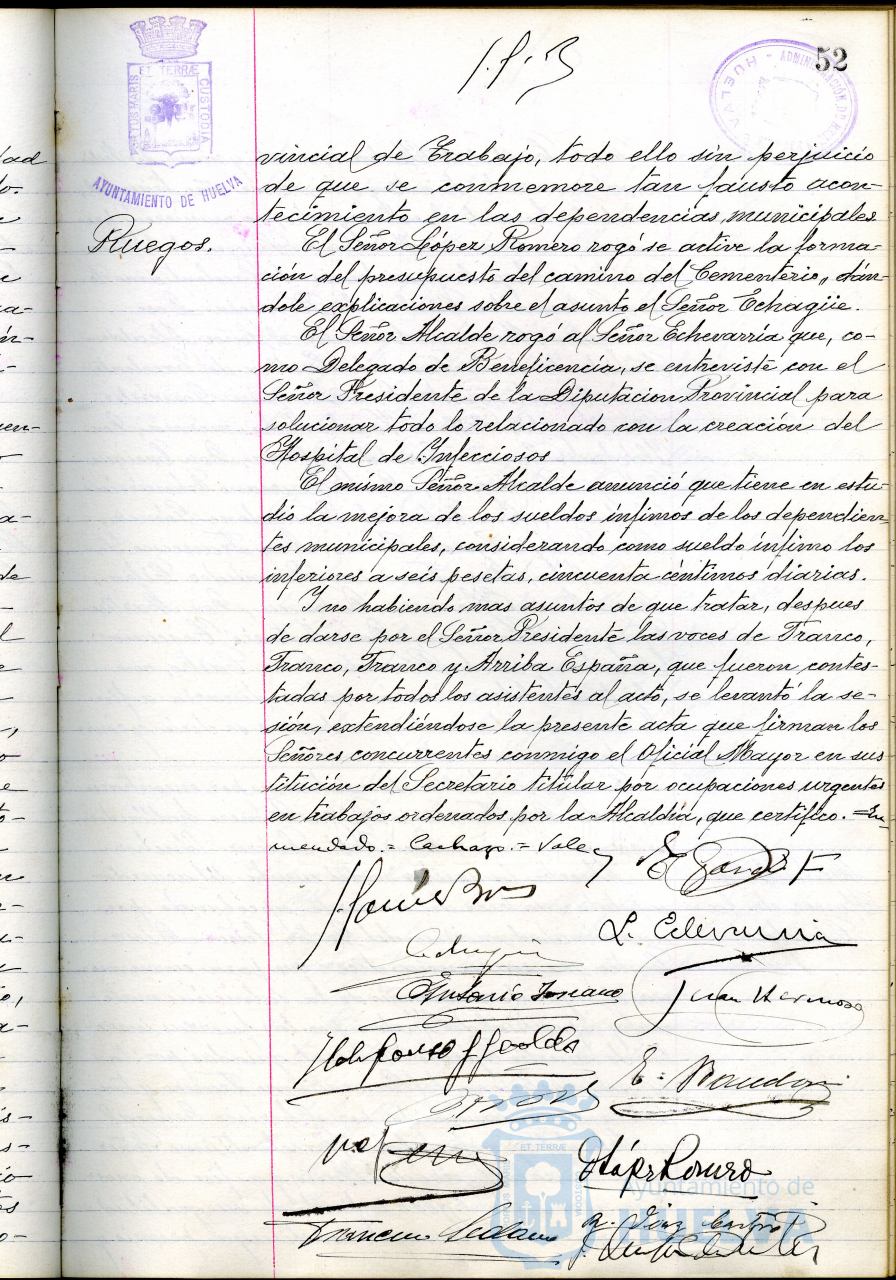 52
PORTUS MARIS ET TERRÆ CUSTODIA
AYUNTAMIENTO DE HUELVA
HUELVA - ADMINISTRACIÓN DE
vincial de Trabajo, todo ello sin perjuicio
de que se conmemore tan fausto acon-
tecimiento en las dependencias municipales
Ruegos.
El Señor López Romero rogó se active la forma-
ción del presupuesto del camino del Cementerio, dán-
dole explicaciones sobre el asunto el Señor Echagüe.
El Señor Alcalde rogó al Señor Echevarría que, co-
mo Delegado de Beneficencia, se entreviste con el
Señor Presidente de la Diputacion Provincial para
solucionar todo lo relacionado con la creación del
Hospital de Infecciosos
El mismo Señor Alcalde anunció que tiene en estu-
dio la mejora de los sueldos ínfimos de los dependien-
tes municipales, considerando como sueldo ínfimo los
inferiores a seis pesetas, cincuenta céntimos diarias.
Y no habiendo mas asuntos de que tratar, despues
de darse por el Señor Presidente las voces de Franco,
Franco, Franco y Arriba España, que fueron contes-
tadas por todos los asistentes al acto, se levantó la se-
sión, extendiéndose la presente acta que firman los
Señores concurrentes conmigo el Oficial Mayor en sus
titución del Secretario titular por ocupaciones urgentes
en trabajos ordenados por la Alcaldía, que certifico. = En-
mendado. = = Vale
L. Echevarria
Antonio Toscano
Juan Hermoso
Ildefonso
E.
López Romero
Francisco
R. Díaz
ET TERRÆ
Ayuntamiento de
HUELVA